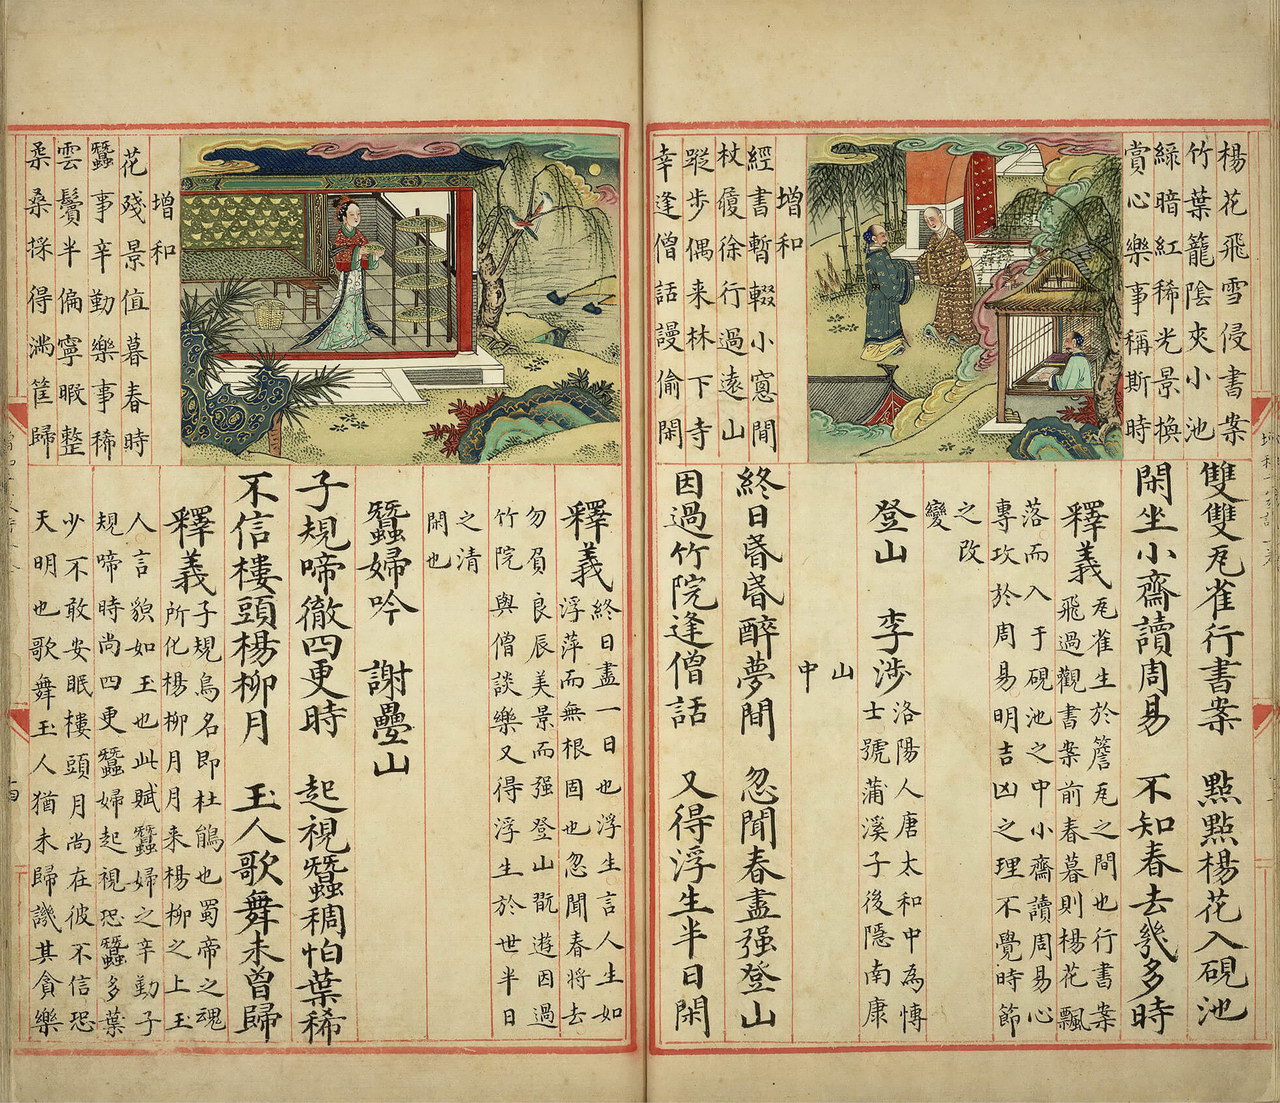 楊花飛雪侵書案
竹葉籠陰夾小池
綠暗紅稀光景換
賞心樂事稱斯時
雙雙瓦雀行書案 點點楊花入硯池
閑坐小齋讀周易 不知春去幾多時
釋義 瓦雀生於簷瓦之間也行書案
飛過觀書案前春暮則楊花飄
落而入于硯池之中小齋讀周易心
專攻於周易明吉凶之理不覺時節
之改
變
登山 李涉 洛陽人唐太和中為博
士號蒲溪子後隱南康
山
中
增和
經書暫輟小窓間
杖履徐行過遠山
蹤步偶来林下寺
幸逢僧話謾偷閑
終日昏昏醉夢間 忽聞春盡强登山
因過竹院逢僧話 又得浮生半日閑
釋義 終日盡一日也浮生言人生如
浮萍而無根固也忽聞春將去
勿負良辰美景而强登山翫遊因過
竹院與僧談樂又得浮生於世半日
之清
閑也
蠶婦吟 謝疊山
子規啼徹四更時 起視蠶稠怕葉稀
不信樓頭楊柳月 玉人歌舞未曾歸
增和
花殘景值暮春時
蠶事辛勤樂事稀
雲鬢半偏寧暇整
桑桑採得滿筐歸
釋義 子規鳥名即杜鵑也蜀帝之魂
所化楊柳月月来楊柳之上玉
人言貌如玉也此賦蠶婦之辛勤子
規啼時尚四更蠶婦起視恐蠶多葉
少不敢安眠樓頭月尚在彼不信恐
天明也歌舞玉人猶未歸譏其貪樂